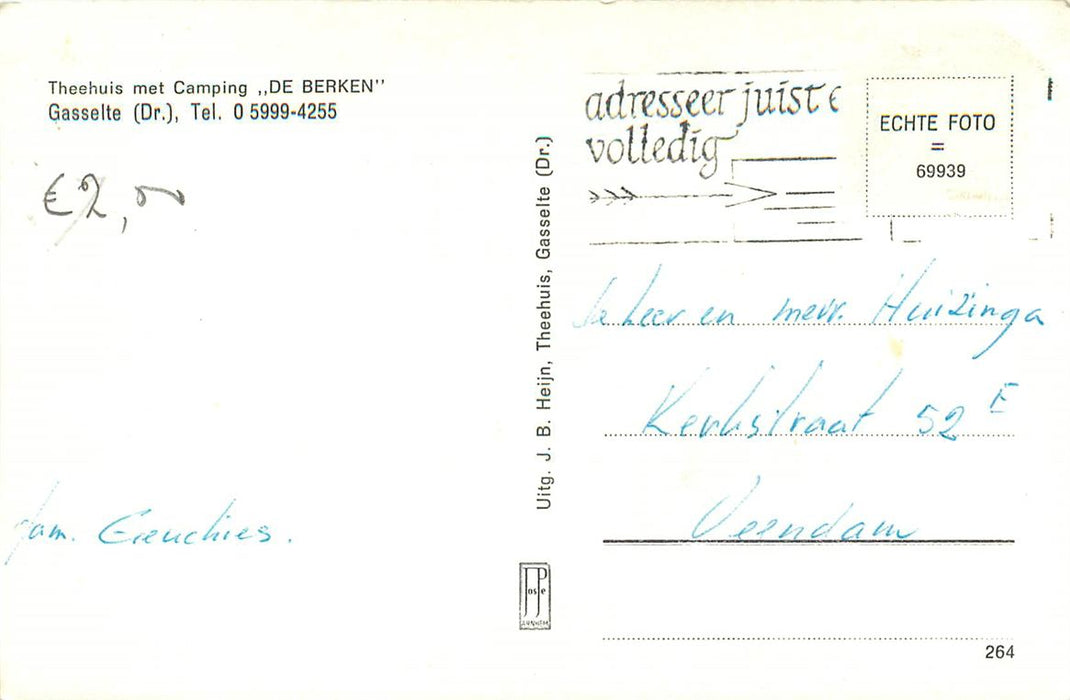 Theehuis met Camping ,,DE BERKEN''
Gasselte (Dr.), Tel. 0 5999-4255
€2,00
fam.
Uitg. J. B. Heijn, Theehuis, Gasselte (Dr.)
JosPe
ARNHEM
adresseer juist e
volledig
ECHTE FOTO
=
69939
de heer en mevr. Huizinga
Kerkstraat 52 E
Veendam
264